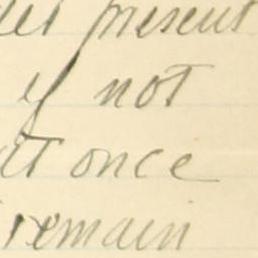 present
if not
at once
remain